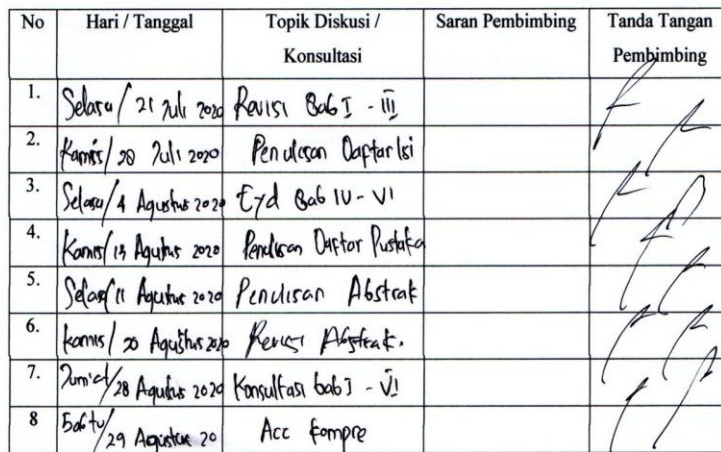 No Hari / Tanggal Topik Diskusi / Konsultasi Saran Pembimbing Tanda Tangan Pembimbing
1. Selasa / 21 Juli 2020 Revisi Bab I - III
2. Kamis / 28 Juli 2020 Penulisan Daftar Isi
3. Selasa / 4 Agustus 2020 Eyd Bab IV - VI
4. Kamis / 13 Agustus 2020 Penulisan Daftar Pustaka
5. Selasa / 11 Agustus 2020 Penulisan Abstrak
6. Kamis / 20 Agustus 2020 Revisi Abstrak.
7. Jum'at / 28 Agustus 2020 Konsultasi bab I - VI
8 Sabtu / 29 Agustus 20 Acc Kompre